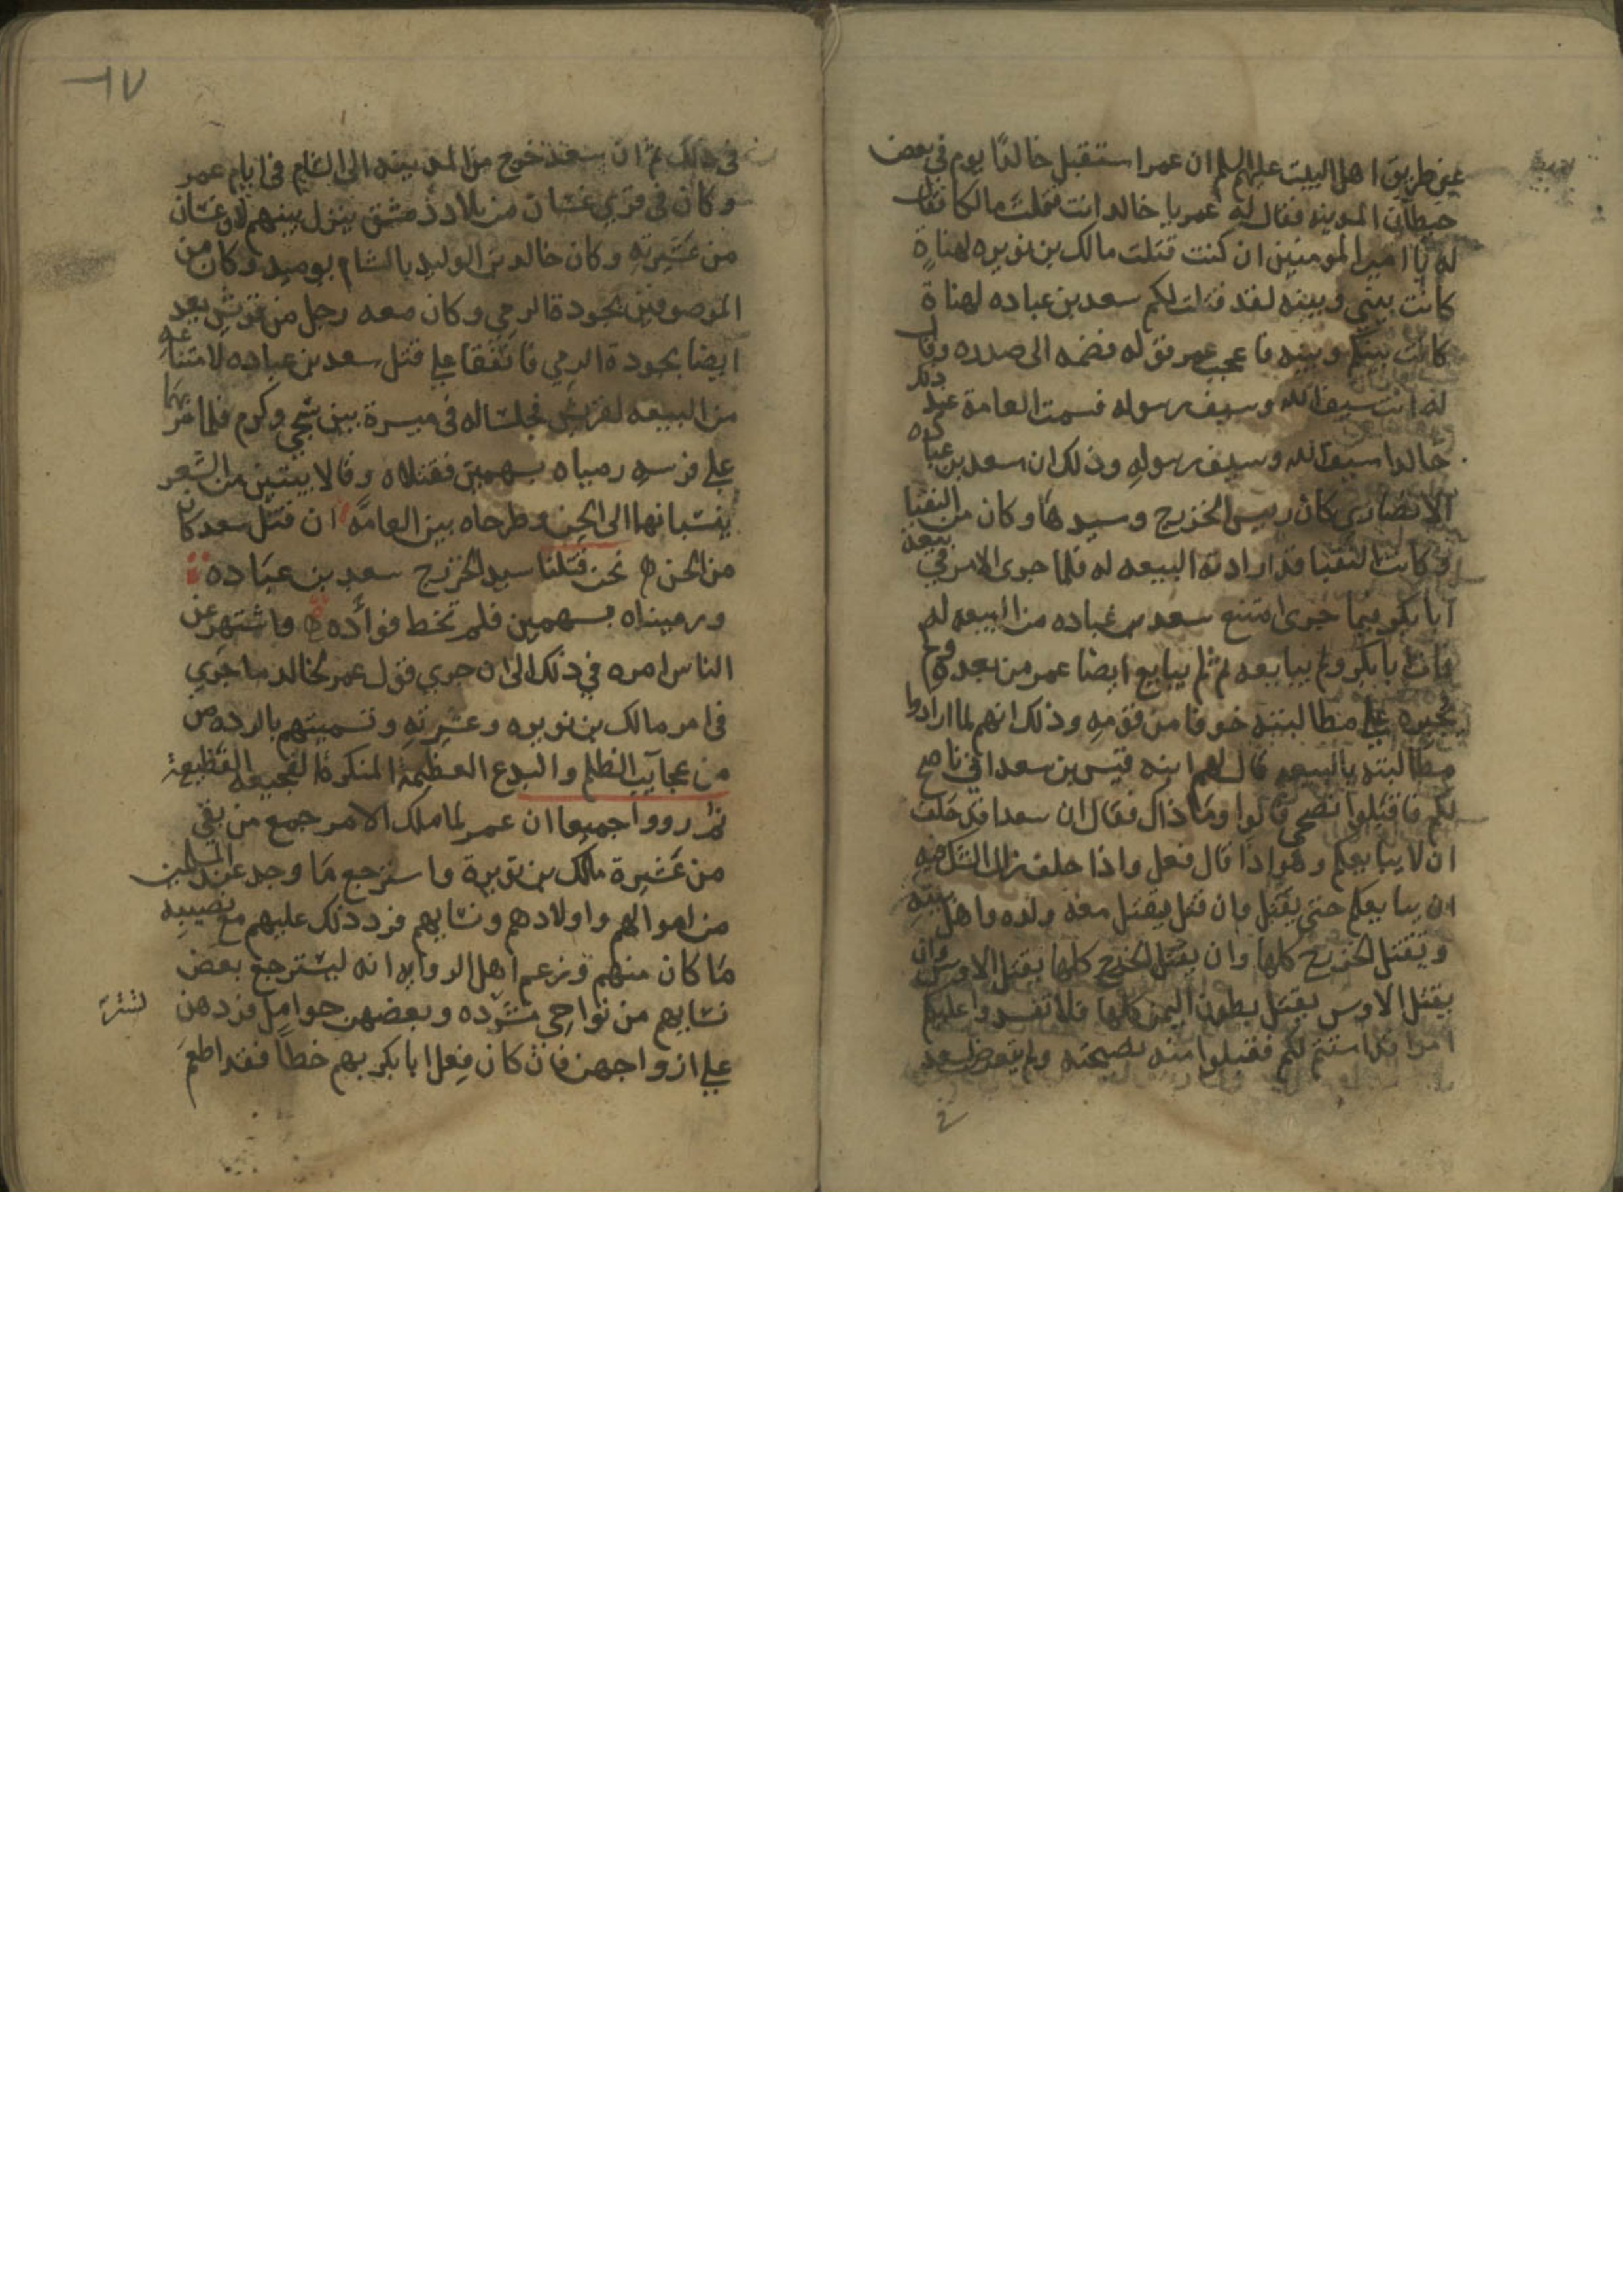 غير طريق اهل البيت عليهم السلم ان عمرا استقبل خالدًا يوم في بعض
حيطان المدينه فقال له عمر يا خالد انت قتلت مالكا فقال
له يا امير المومنين ان كنت قتلت مالك بن نويره لهناةٍ
كانت بيني وبينه لقد قتلت لكم سعد بن عباده لهناة
كانت بينكم وبينه فاعجب عمر قوله فضمه الى صدره وقال
له انت سيف الله وسيف رسوله فسمت العامة عند ذلك
خالدا سيف الله وسيف رسولهِ وذلك ان سعد بن عباده
الانصاري كان رييس الخزرج وسيدها وكان من النقبا
وكانت النقبا قد ارادته البيعه له فلما جرى الامر في بيعة
ابا بكر بما جرى امتنع سعد بن عباده من البيعه له
فمات ابا بكر ولم يبايعه ثم لم يبايع ايضا عمر من بعده ولم
يجبره على مطالبته خوفا من قومهِ وذلك انهم لما ارادوا
مطالبته بالبيعه قال لهم ابنه قيس بن سعد اني ناصح
لكم فاقبلوا نصحي قالوا وما ذاك فقال ان سعدا قد حلف
ان لا يبايعكم وهو اذا قال فعل واذا حلف
ان يبايعكم حتى يقتل وان قتل يقتل معه ولده واهل بيته
ويقتل الخزرج كلها وان يقتل الخزرج كلها يقتل الاوس وان
يقتل الاوس يقتل بطون اليمن كلها فلا تفسدوا عليكم
امرا قد استتم لكم فقبلوا منه نصيحته ولم يتعرض لسعد
في
٦٧
في ذلك ثم ان سعد خرج من المدينه الى الشام في ايام عمر
وكان في قرى غسان من بلاد دمشق ينزل بينهم لان غسان
من عشيرته وكان خالد بن الوليد بالشام يوميد وكان من
الموصوفين بجودة الرمي وكان معه رجل من قريش يعد
ايضا بجودة الرمي فاتفقا على قتل سعد بن عباده لامتناعه
من البيعه لقريش فجلسا له في ميسرة بين شجر وكرم فلما مر بهما
على فرسه رمياه بسهمين فقتلاه وقالا بيتين من الشعر
ينسبانهما الى الجن وطرحاه بين العامه ان قتل سعد كان
من الجن نحن قتلنا سيد الخزرج سعد بن عباده
ورميناه بسهمين فلم نخط فؤاده فاشتهر عن
الناس امره في ذلك الى ان جرى قول عمر لخالد ما جرى
في امر مالك بن نويره وعشيرته وتسميتهم بالرده من
من عجايب الظلم والبدع العظيمة المنكرة الفجيعه الفظيعة
ثم رووا جميعا ان عمر لما ملك الامر جمع من بقي
من عشيرة مالك بن نويرة واسترجع ما وجد عند المسلمين
من اموالهم واولادهم ونسايهم فرد ذلك عليهم مع نصيبه
ما كان منهم وزعم اهل الروايه انه ليسترجع بعض
نسايهم من نواحي وبعضهن حوامل فردهن
على ازواجهن فان كان فعل ابا بكر بهم خطا فقد اطعم